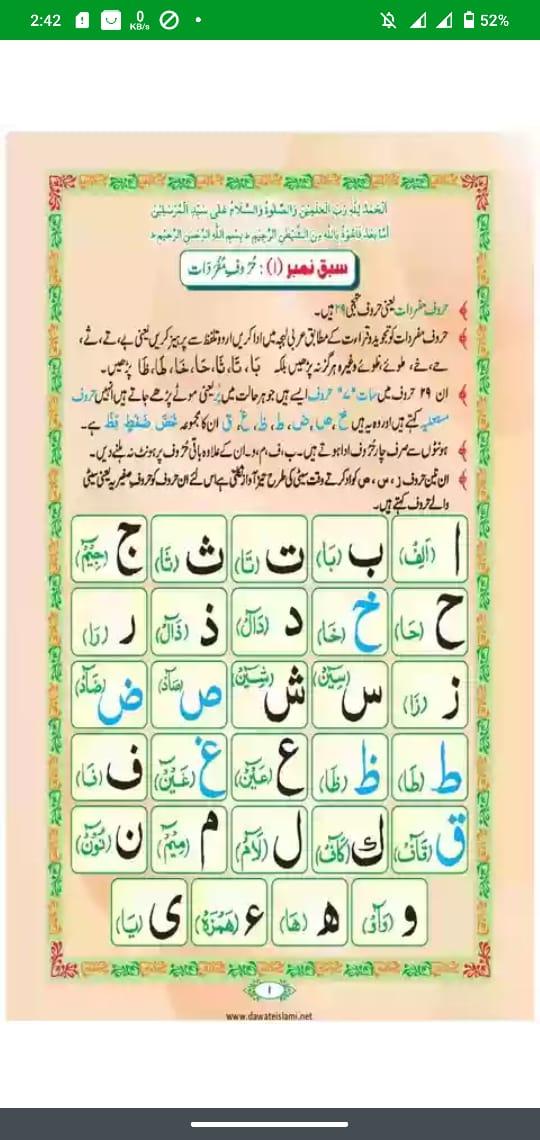 2:42
0 KB/s
52%
اَلْحَمْدُ لِلّٰہِ رَبِّ الْعٰلَمِیْنَ وَالصَّلٰوۃُ وَالسَّلَامُ عَلٰی سَیِّدِ الْمُرْسَلِیْنَ
اَمَّا بَعْدُ فَاَعُوْذُ بِاللّٰہِ مِنَ الشَّیْطٰنِ الرَّجِیْمِ ط بِسْمِ اللّٰہِ الرَّحْمٰنِ الرَّحِیْمِ ط
سبق نمبر (۱) : حُرُوفِ مُفْرَدَات
حروفِ مفردات یعنی حروفِ تہجی ۲۹ ہیں۔
حروفِ مفردات کو تجوید و قراءت کے مطابق عربی لہجہ میں ادا کریں اردو تلفظ سے پرہیز کریں یعنی بے، تے، ثے،
حے، خے، طوئے، ظوئے وغیرہ ہرگز نہ پڑھیں بلکہ بَا، تَا، ثَا، حَا، خَا، طَا، ظَا پڑھیں۔
ان ۲۹ حروف میں سات "۷" حروف ایسے ہیں جو ہر حالت میں پُر یعنی موٹے پڑھے جاتے ہیں انہیں حروفِ
مستعلیہ کہتے ہیں اور وہ یہ ہیں خ، ص، ض، ط، ظ، غ، ق ان کا مجموعہ خُصَّ ضَغْطٍ قِظْ ہے۔
ہونٹوں سے صرف چار حُروف ادا ہوتے ہیں۔ ب، ف، م، و۔ ان کے علاوہ باقی حُروف پر ہونٹ نہ ہلنے دیں۔
ان تین حروف ز، س، ص کو ادا کرتے وقت سیٹی کی طرح تیز آواز نکلتی ہے اس لئے ان حروف کو حروفِ صفیریہ یعنی سیٹی
والے حروف کہتے ہیں۔
ا (اَلِفْ) ب (بَا) ت (تَا) ث (ثَا) ج (جِیْمْ)
ح (حَا) خ (خَا) د (دَالْ) ذ (ذَالْ) ر (رَا)
ز (زَا) س (سِیْنْ) ش (شِیْنْ) ص (صَادْ) ض (ضَادْ)
ط (طَا) ظ (ظَا) ع (عَیْنْ) غ (غَیْنْ) ف (فَا)
ق (قَافْ) ك (كَافْ) ل (لَامْ) م (مِیْمْ) ن (نُوْنْ)
و (وَاوْ) ھ (ھَا) ء (ھَمْزَہْ) ی (یَا)
۱
www.dawateislami.net